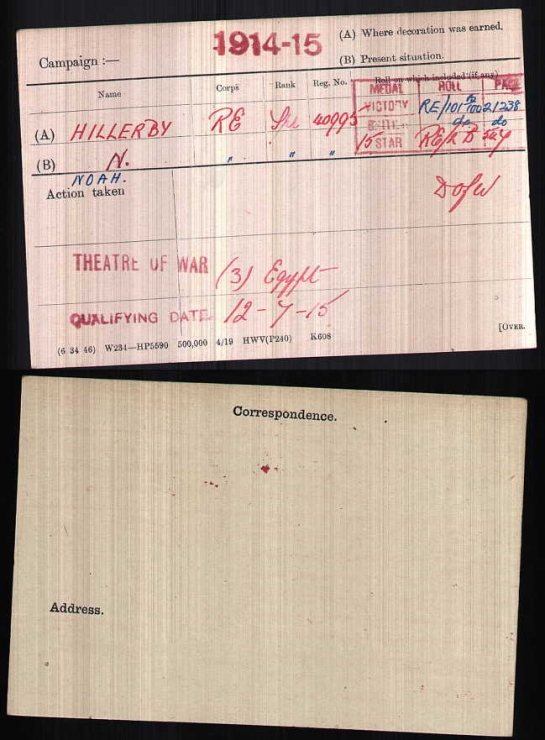 1914-15
(A) Where decoration was earned.
Campaign :—
(B) Present situation.
Name Corps Rank Reg. No. Roll on which included (if any)
MEDAL ROLL PAGE
(A) HILLERBY RE 40995 VICTORY RE/101 21238
BRITISH do do
(B) N. " " " 15 STAR
NOAH.
Action taken
D of W
THEATRE OF WAR (3) Egypt
QUALIFYING DATE 12-7-15
(6 34 46) W234—HP5590 500,000 4/19 HWV(P240) K608
[OVER.
Correspondence.
Address.